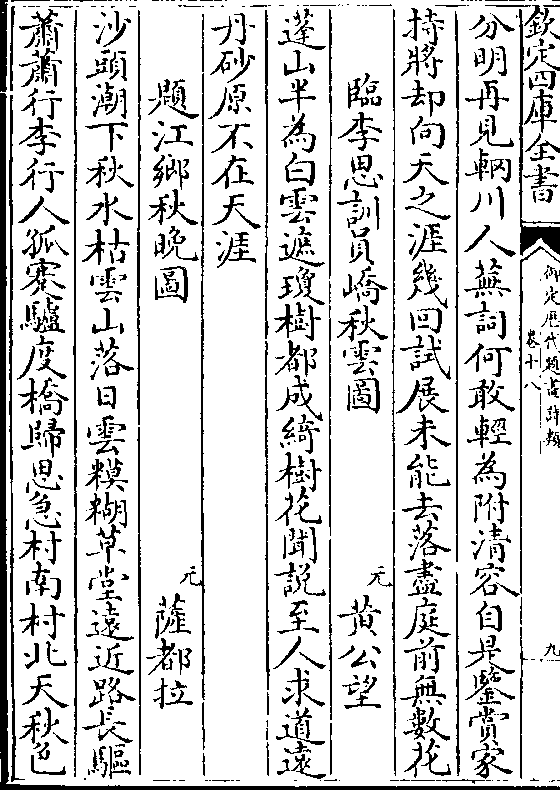 欽定四庫全書
御定歷代題畫詩類
卷十八
九
分明再見輞川人蕪詞何敢輕為附清容自是鑒賞家
持將却向天之涯幾回試展未能去落盡庭前無數花
臨李思訓員嶠秋雲圖 元 黄公望
蓬山半為白雲遮瓊樹都成綺樹花聞說至人求道遠
丹砂原不在天涯
題江鄉秋晚圖 元 薩都拉
沙頭潮下秋水枯雲山落日雲糢糊草堂遠近路長驅
蕭蕭行李行人孤蹇驢度橋歸思急村南村北天秋色